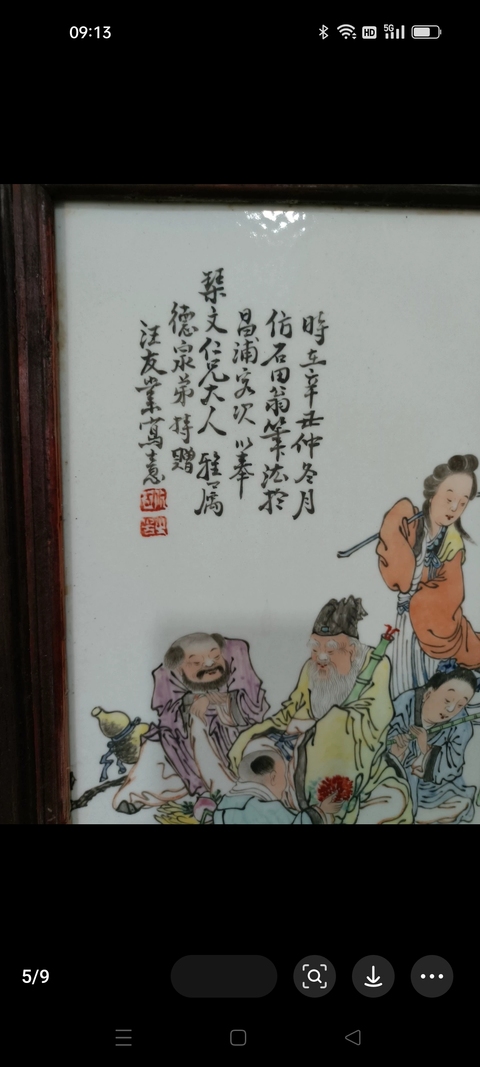 09:13
HD
5G
時在辛丑仲冬月
仿石田翁筆法於
昌浦客次 以奉
琹文仁兄大人 雅屬
德泉弟持贈
汪友棠寫意
5/9